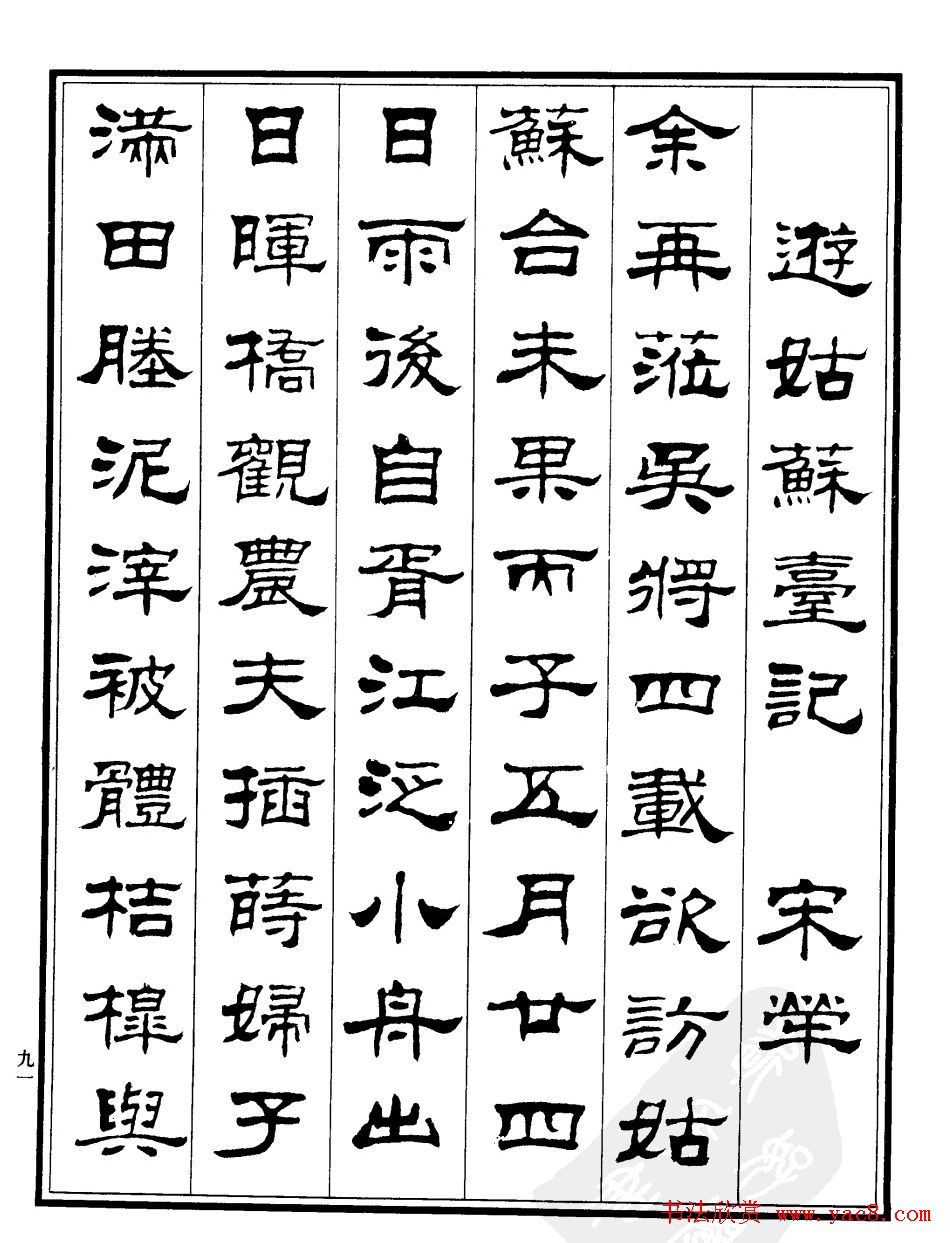 遊姑蘇臺記 宋犖
余再蒞吳將四載欲訪姑
蘇台未果丙子五月廿四
日雨後自胥江泛小舟出
日暉橋觀農夫插蒔婦子
滿田塍泥滓被體桔槔與
九一
书法欣赏 www.yac8.com